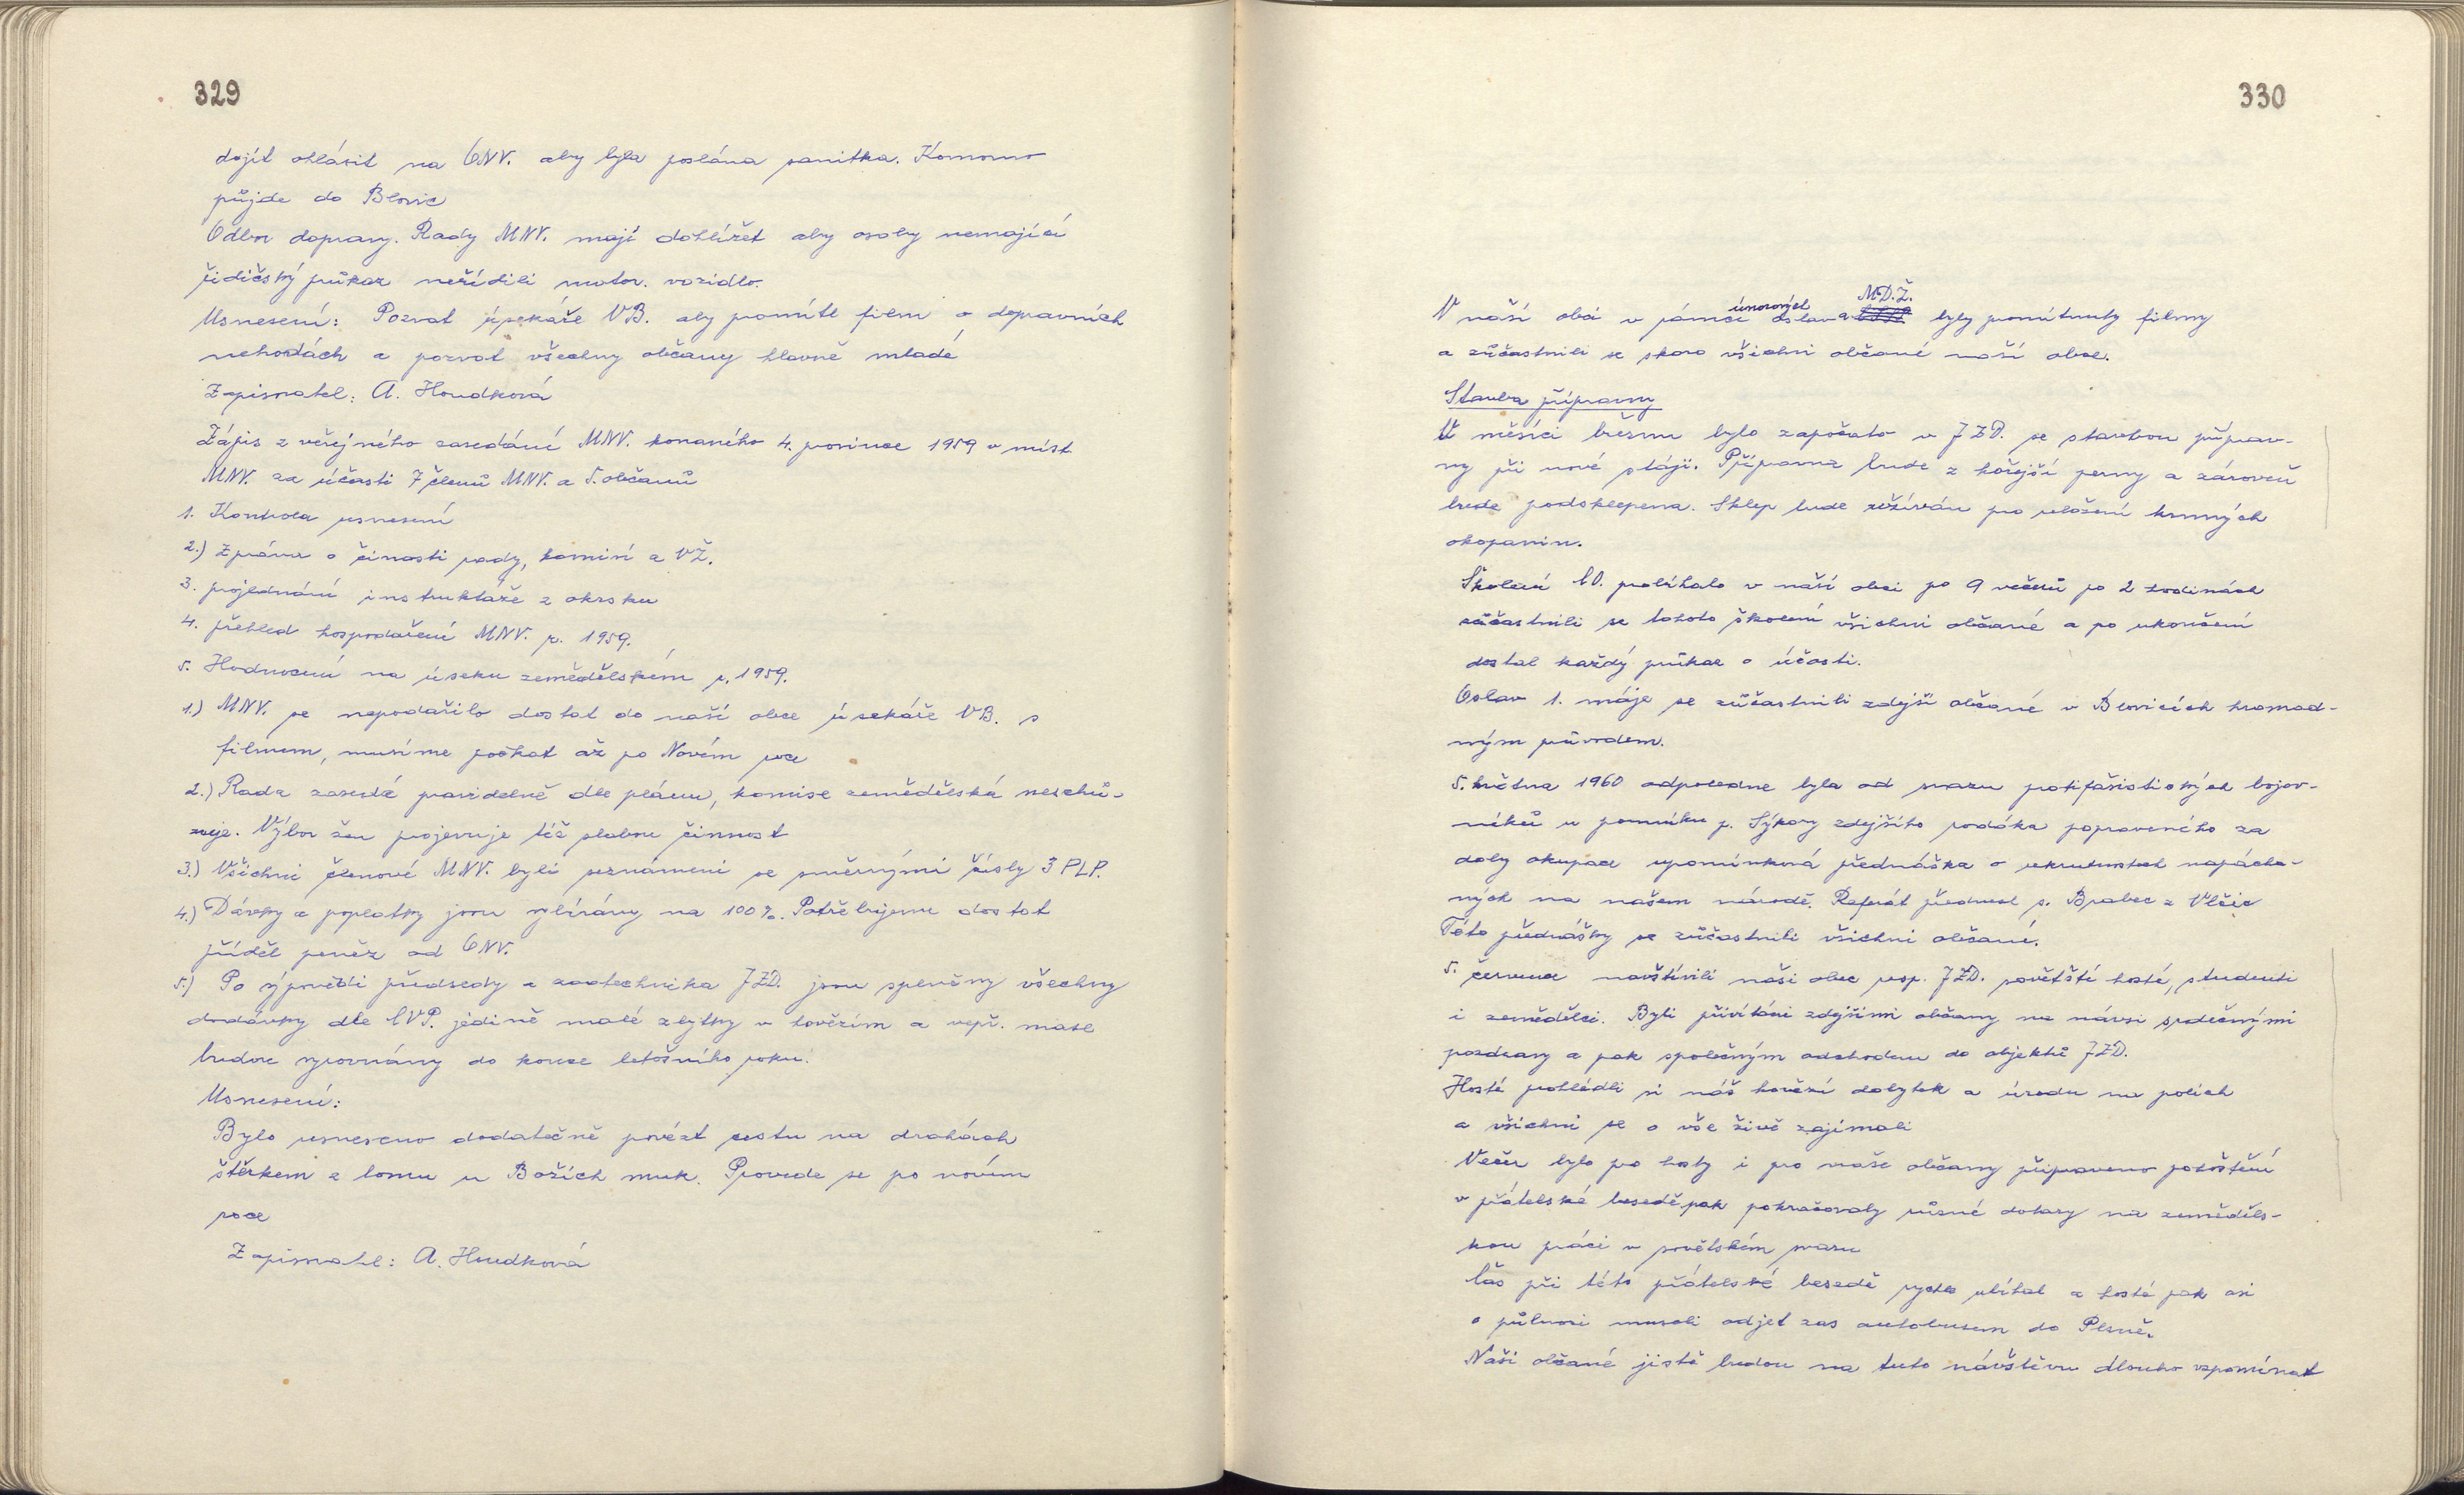 329
dojít ohlásit na ONV. aby byla poslána sanitka. Komorno
půjde do Blovic
Odbor dopravy. Rady MNV. mají dohlížet aby osoby nemající
řidičský průkaz neřídili motor. vozidlo.
Usnesení: Pozvat úsekáře VB. aby promítl film o dopravních
nehodách a pozvat všechny občany hlavně mladé
Zapisovatel: A. Houdková
Zápis z veřejného zasedání MNV. konaného 4. prosince 1959 v míst.
MNV. za účasti 7 členů MNV. a 5. občanů
1. Kontrola usnesení
2.) Zpráva o činosti rady, komisí a VŽ.
3. projednání instruktáže z okrsku
4. přehled hospodaření MNV. r. 1959.
5. Hodnocení na úseku zemědělském r. 1959.
1.) MNV. se nepodařilo dostat do naší obce úsekáře VB. s
filmem, musíme počkat až po Novém roce
2.) Rada zasedá pravidelně dle plánu, komise zemědělská neschů-
zuje. Výbor žen projevuje též slabou činnost
3.) Všichni členové MNV. byli seznámeni se směrnými čísly 3 PLP.
4.) Dávky a poplatky jsou vybírány na 100%. Potřebujeme dostat
příděl peněz od ONV.
5.) Po výpovědi předsedy a zootechnika JZD. jsou splněny všechny
dodávky dle CVP. jedině malé zbytky v hovězím a vepř. mase
budou vyrovnány do konce letošního roku.
Usnesení:
Bylo usneseno dodatečně povézt cestu na drahách
štěrkem z lomu u Božích muk. Provede se po novém
roce
Zapisovatel: A. Houdková
330
V naší obci v rámci únorových oslav a M.D.Ž. byly promítnuty filmy
a zůčastnili se skoro všichni občané naší obce.
Stavba přípravny
V měsíci březnu bylo započato v JZD. se stavbou příprav-
ny při nové stáji. Přípravna bude z hořejší strany a zároveň
bude podsklepena. Sklep bude užíván pro uložení krmných
okopanin.
Školení CO. probíhalo v naší obci po 9 večerů po 2 hodinách
zůčastnili se tohoto školení všichni občané a po ukončení
dostal každý průkaz o účasti.
Oslav 1. máje se zůčastnili zdejší občané v Blovicích hromad-
ným průvodem.
5. května 1960 odpoledne byla od svazu protifašistických bojov-
níků u pomníku p. Sýkory zdejšího rodáka popraveného za
doby okupace upomínková přednáška o ukrutnostech napácha-
ných na našem národě. Referát přednesl s. Brabec z Vlčic
Této přednášky se zůčastnili všichni občané.
5. července navštívili naši obec resp. JZD. sovětští hosté, studenti
i zemědělci. Byli přivítáni zdejšími občany na návsi srdečnými
pozdravy a pak společným odchodem do objektů JZD.
Hosté prohlédli si náš hovězí dobytek a úrodu na polích
a všichni se o vše živě zajímali
Večer bylo pro hosty i pro naše občany připraveno pohoštění
v přátelské besedě pak pokračovaly různé dotazy na zeměděls-
kou práci v sovětském svazu
Čas při této přátelské besedě rychle ubíhal a hosté pak asi
o půlnoci museli odjet zas autobusem do Plzně.
Naši občané jistě budou na tuto návštěvu dlouho vzpomínat